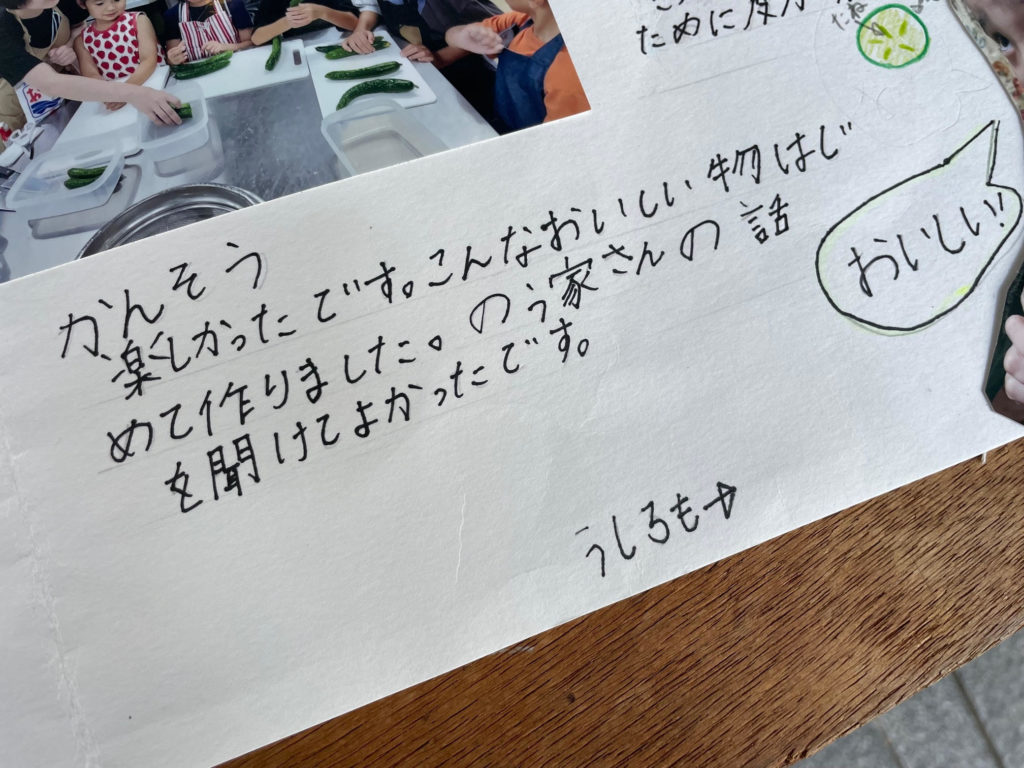 ために
たね
かんそう
楽しかったです。こんなおいしい物はじ
めて作りました。のう家さんの話
を聞けてよかったです。
おいしい!!
うしろも→